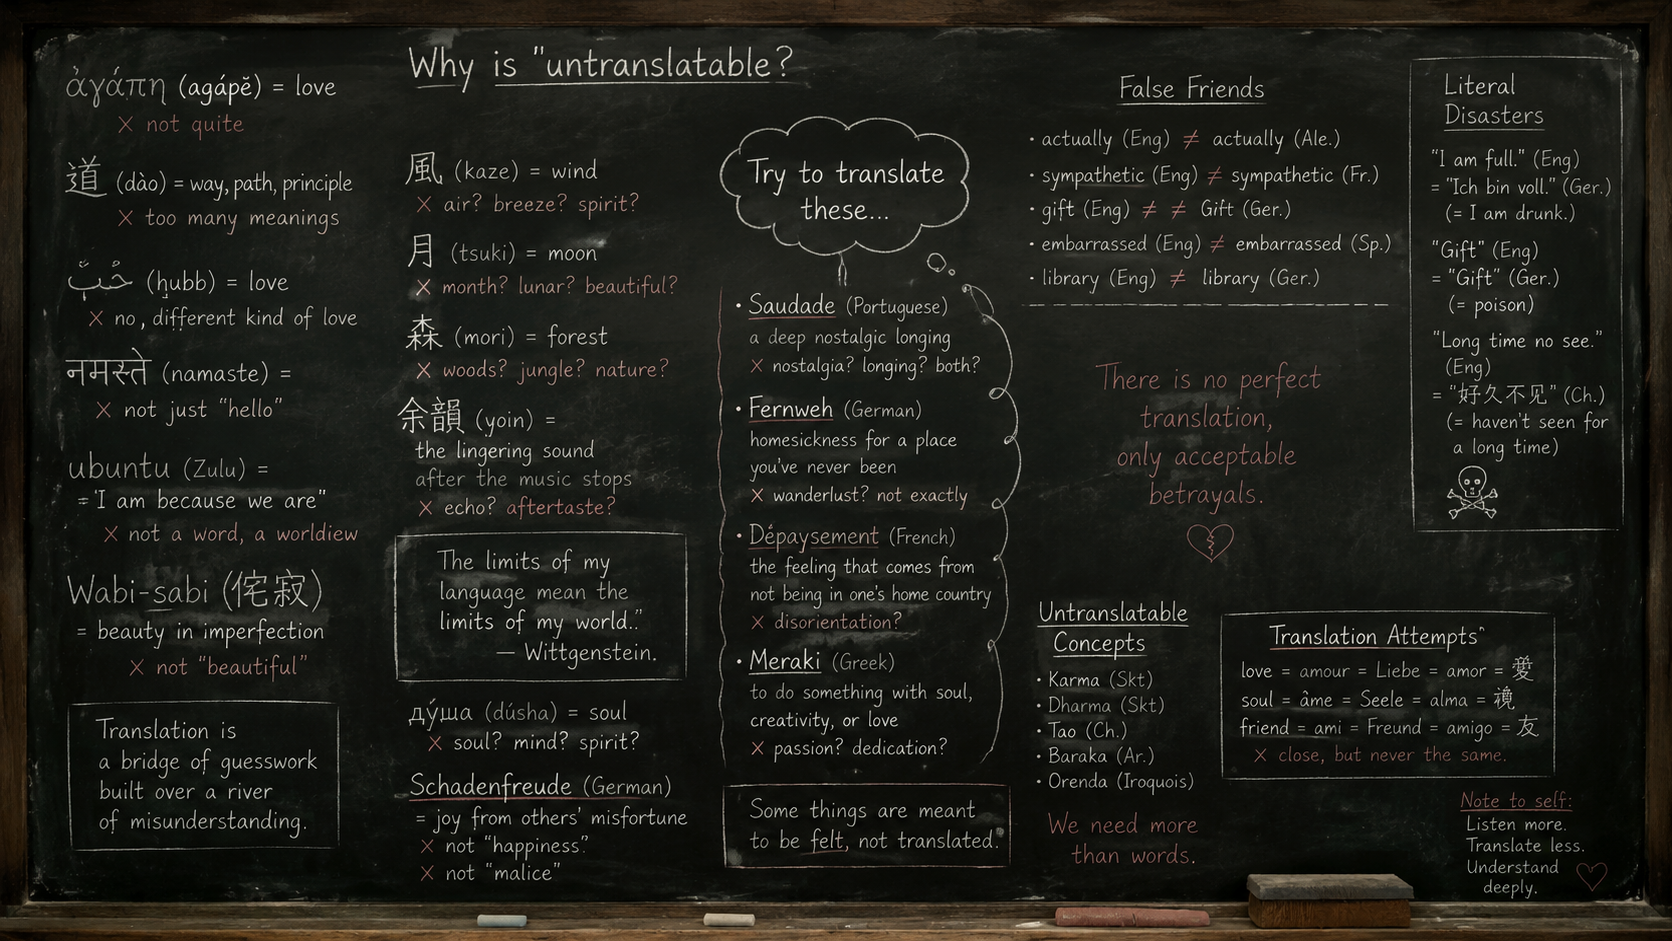 Why is "untranslatable?
ἀγάπη (agápĕ) = love
✗ not quite
道 (dào) = way, path, principle
✗ too many meanings
(ḥubb) = love
✗ no, different kind of love
नमस्ते (namaste) =
✗ not just "hello"
ubuntu (Zulu) =
= "I am because we are"
✗ not a word, a worldiew
Wabi-sabi (侘寂)
= beauty in imperfection
✗ not "beautiful"
Translation is
a bridge of guesswork
built over a river
of misunderstanding.
風 (kaze) = wind
✗ air? breeze? spirit?
月 (tsuki) = moon
✗ month? lunar? beautiful?
森 (mori) = forest
✗ woods? jungle? nature?
余韻 (yoin) =
the lingering sound
after the music stops
✗ echo? aftertaste?
The limits of my
language mean the
limits of my world."
— Wittgenstein.
ду́ша (dúsha) = soul
✗ soul? mind? spirit?
Schadenfreude (German)
= joy from others' misfortune
✗ not "happiness"
✗ not "malice"
Try to translate
these...
• Saudade (Portuguese)
a deep nostalgic longing
✗ nostalgia? longing? both?
• Fernweh (German)
homesickness for a place
you've never been
✗ wanderlust? not exactly
• Dépaysement (French)
the feeling that comes from
not being in one's home country
✗ disorientation?
• Meraki (Greek)
to do something with soul,
creativity, or love
✗ passion? dedication?
Some things are meant
to be felt, not translated."
False Friends
• actually (Eng) ≠ actually (Ale.)
• sympathetic (Eng) ≠ sympathetic (Fr.)
• gift (Eng) ≠ ≠ Gift (Ger.)
• embarrassed (Eng) ≠ embarrassed (Sp.)
• library (Eng) ≠ library (Ger.)
There is no perfect
translation,
only acceptable
betrayals.
Untranslatable
Concepts
• Karma (Skt)
• Dharma (Skt)
• Tao (Ch.)
• Baraka (Ar.)
• Orenda (Iroquois)
We need more
than words.
Literal
Disasters
"I am full." (Eng)
= "Ich bin voll." (Ger.)
(= I am drunk.)
"Gift" (Eng)
= "Gift" (Ger.)
(= poison)
"Long time no see."
(Eng)
= "好久不见" (Ch.)
(= haven't seen for
a long time)
Translation Attempts"
love = amour = Liebe = amor = 愛
soul = âme = Seele = alma =
friend = ami = Freund = amigo = 友
✗ close, but never the same.
Note to self:
Listen more.
Translate less.
Understand
deeply.